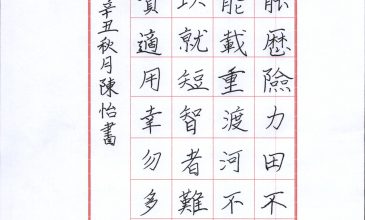 能歷險力田不
能載重渡河不
以就短智者難
貴適用幸勿多
辛丑秋月陳怡書